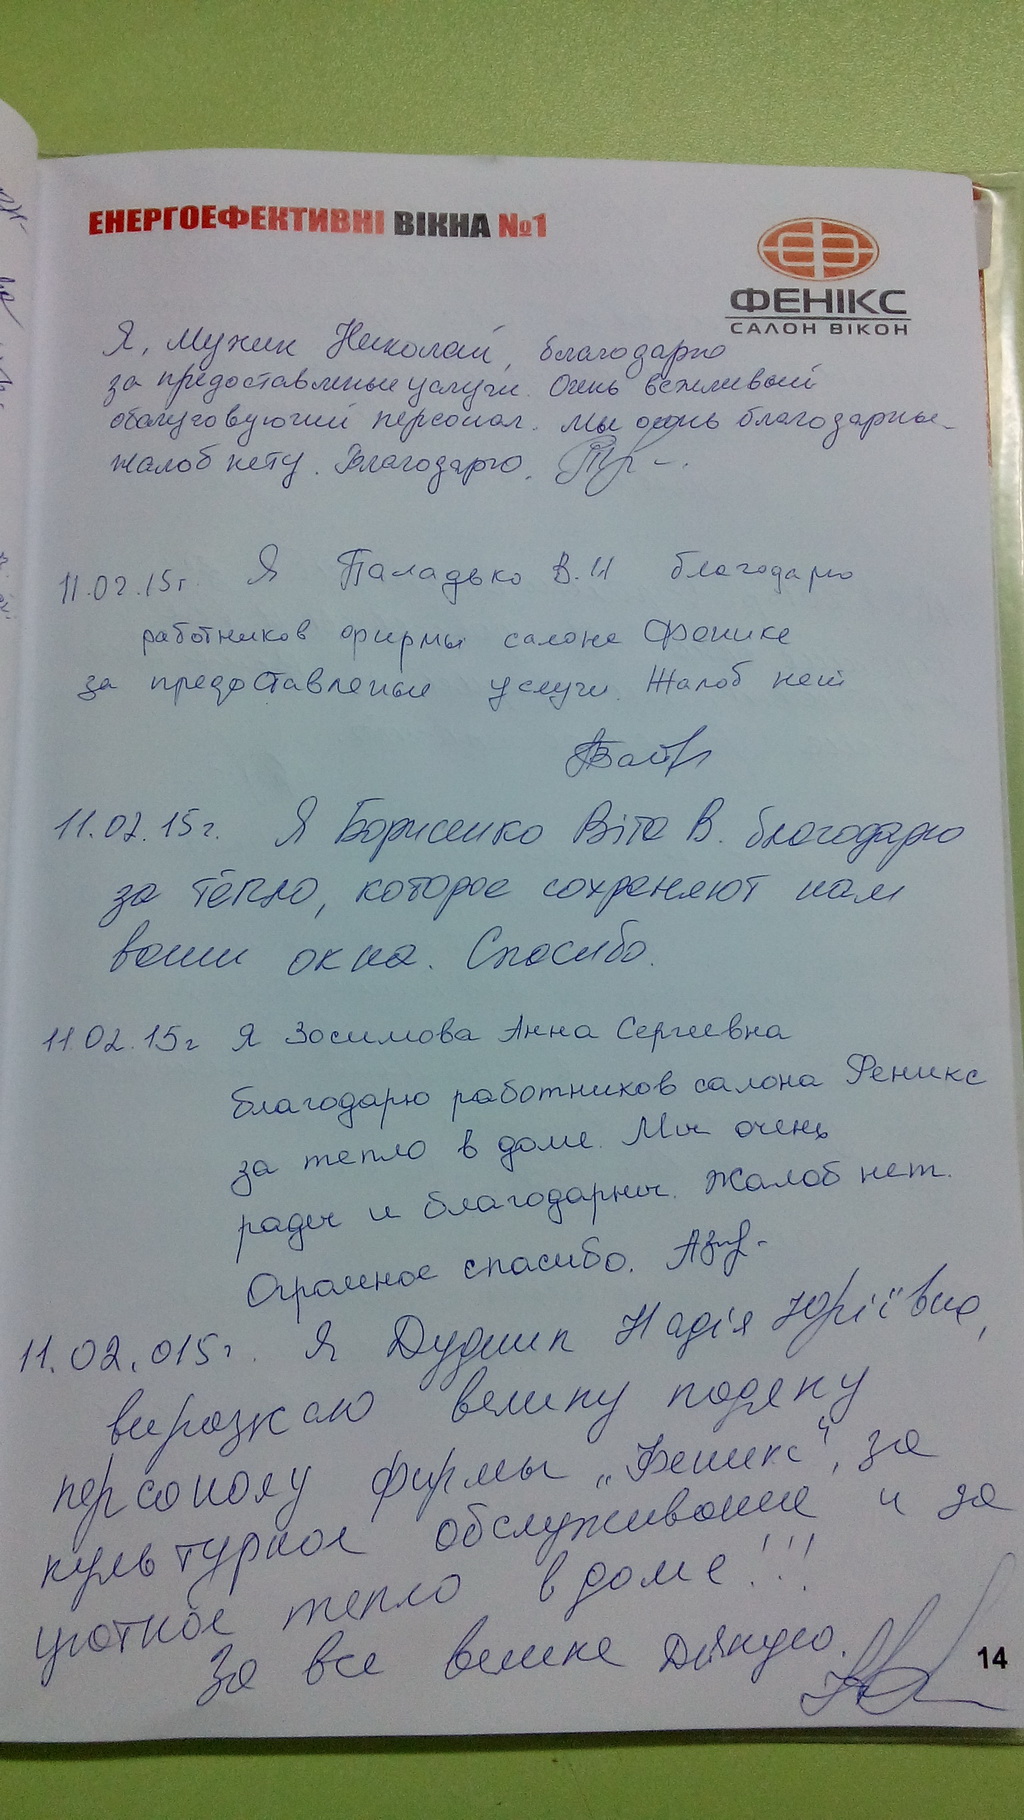 ЕНЕРГОЕФЕКТИВНІ ВІКНА №1
ФЕНІКС
САЛОН ВІКОН
Я, Мужик Николай, благодарю
за предоставленые услуги. Очень вежливый
обслуговуючий персонал. Мы очень благодарные
жалоб нету. Благодарю.
11.02.15г. Я Паладько В.И благодарю
работников фирмы салоне Феникс
за предоставленые услуги. Жалоб нет
11.02.15г. Я Борисенко Віта В. благодарю
за тепло, которое сохраняют нам
ваши окна. Спасибо.
11.02.15г Я Зосимова Анна Сергеевна
благодарю работников салона Феникс
за тепло в доме. Мы очень
рады и благодарны. Жалоб нет.
Огромное спасибо.
11.02.015г. Я Дудник Надія Юріївна,
виражаю велику подяку
персоналу фирмы „Феникс", за
культурное обслуживание и за
уютное тепло в доме!!!
За все велике Дякую.
14